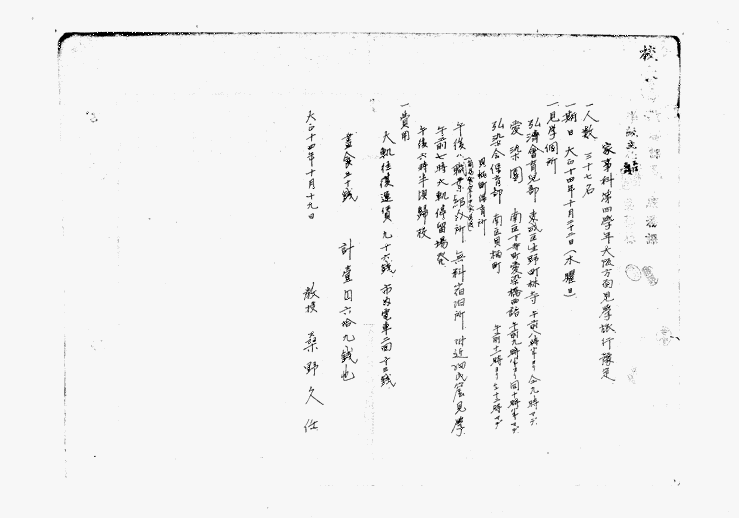 家事科第四學年大阪方面見學旅行豫定
一人數 三十七名
一期日 大正十四年十月二十二日(木曜日)
一見學個所
弘濟會育兒部 東成區生野町林寺 午前八時半ヨリ仝九時マデ
愛染園 南區下寺町愛染橋西詰 午前九時半ヨリ同十時半マデ
弘安會保育部 南區貝柄町 午前十一時ヨリ十二時マデ
貝柄町保育所
午後ハ職業紹介所 無料宿泊所 附近細民窟見學
午前七時大軌停留場發
午後六時半頃歸校
一費用
大軌往復運賃 九十六錢 市內電車二回十三錢
晝食五十錢 計壹円六拾九錢也
大正十四年十月十九日
敎授 桑野久任